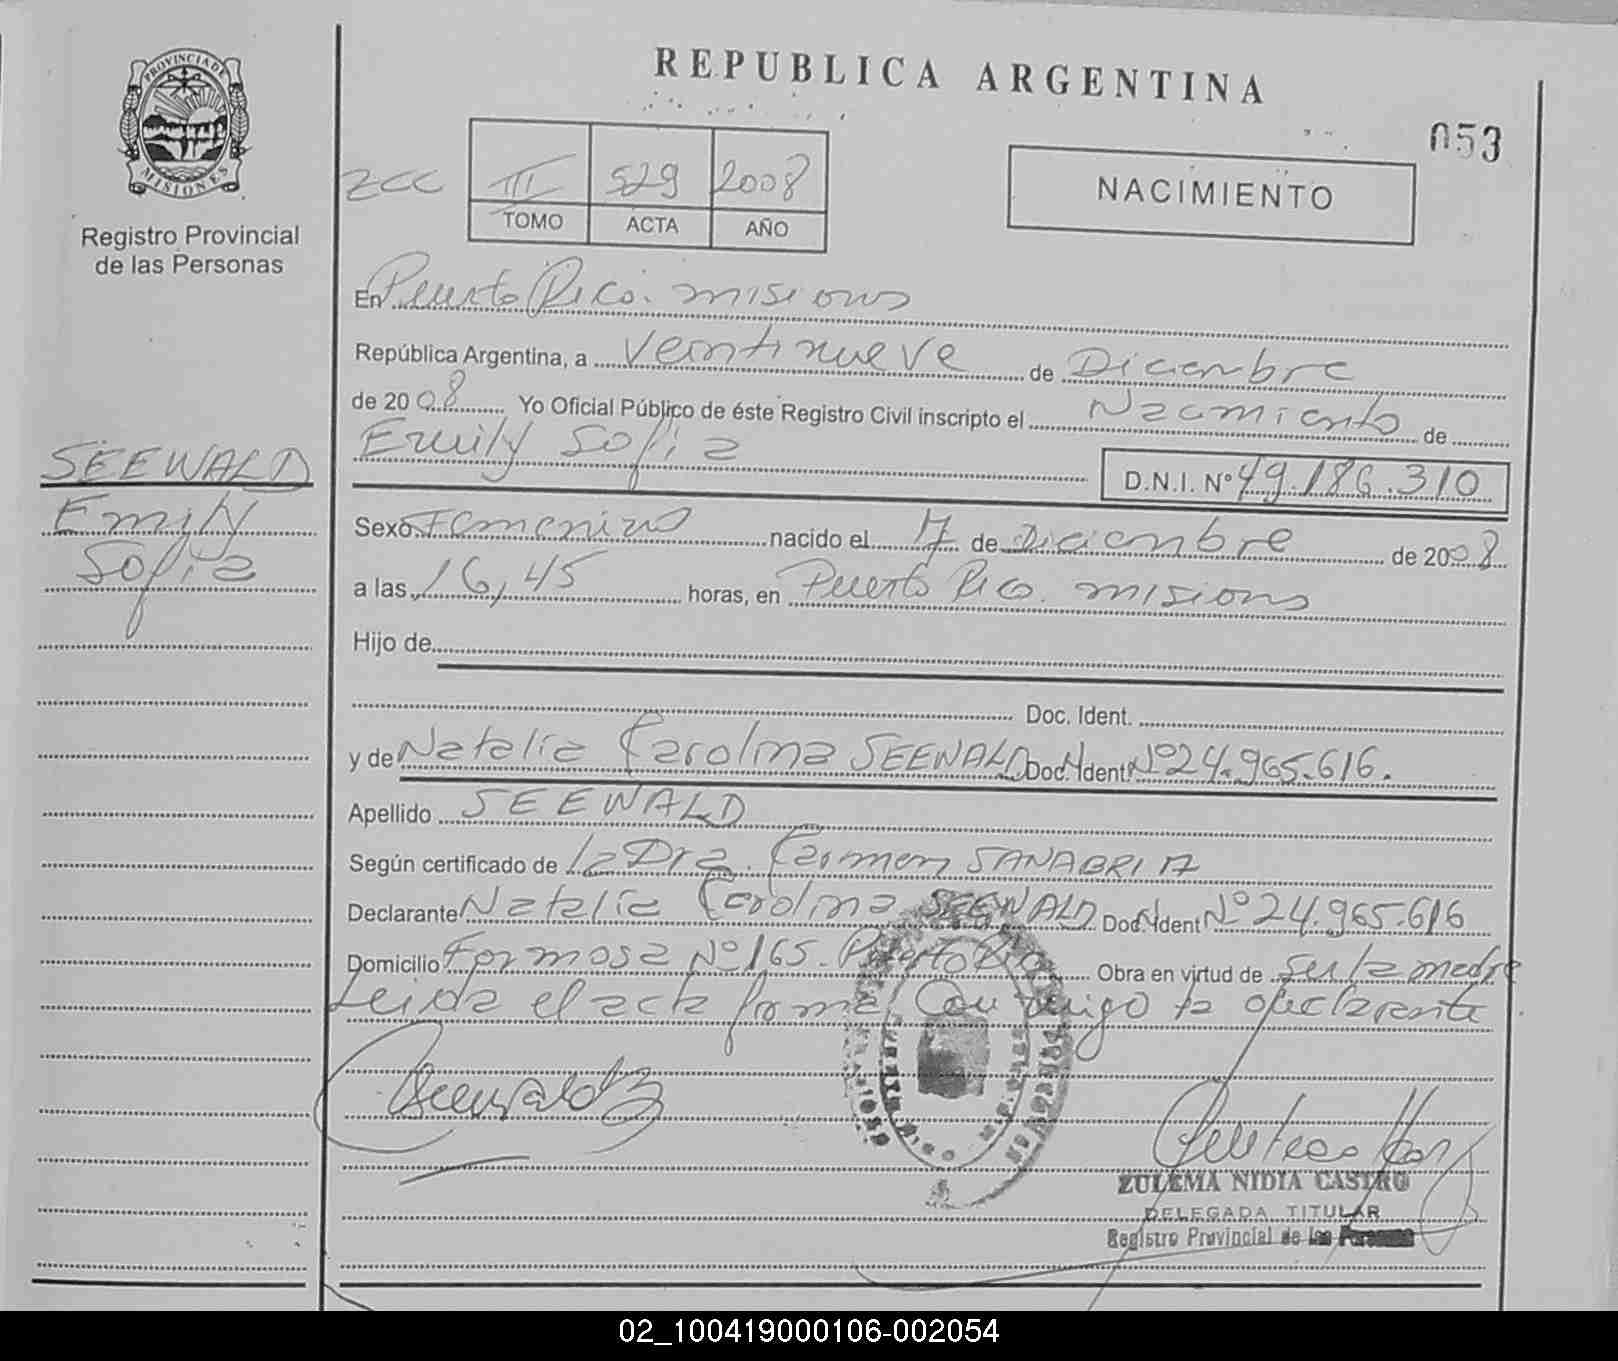 REPUBLICA ARGENTINA
053
PROVINCIA DE
MISIONES
Registro Provincial
de las Personas
zcc III 529 2008
TOMO ACTA AÑO
NACIMIENTO
En Puerto Rico. misiones
República Argentina, a veintinueve de Diciembre
de 2008 Yo Oficial Público de éste Registro Civil inscripto el Nacimiento de
Emily Sofia
D.N.I. Nº 49.186.310
SEEWALD
Emily
Sofia
Sexo Femenino nacido el 17 de Diciembre de 2008
a las 16,45 horas, en Puerto Rico. misiones
Hijo de
Doc. Ident.
y de Natalia Carolina SEEWALD Doc. Ident Nº 24.965.616.
Apellido SEEWALD
Según certificado de la Dra. Carmen SANABRIA
Declarante Natalia Carolina SEEWALD Doc. Ident Nº 24.965.616
Domicilio Formosa Nº 165. Puerto Rico Obra en virtud de ser la madre
Leida el acta firma conmigo la declarante
ZULEMA NIDIA CASTRO
DELEGADA TITULAR
Registro Provincial de las Personas
02_100419000106-002054